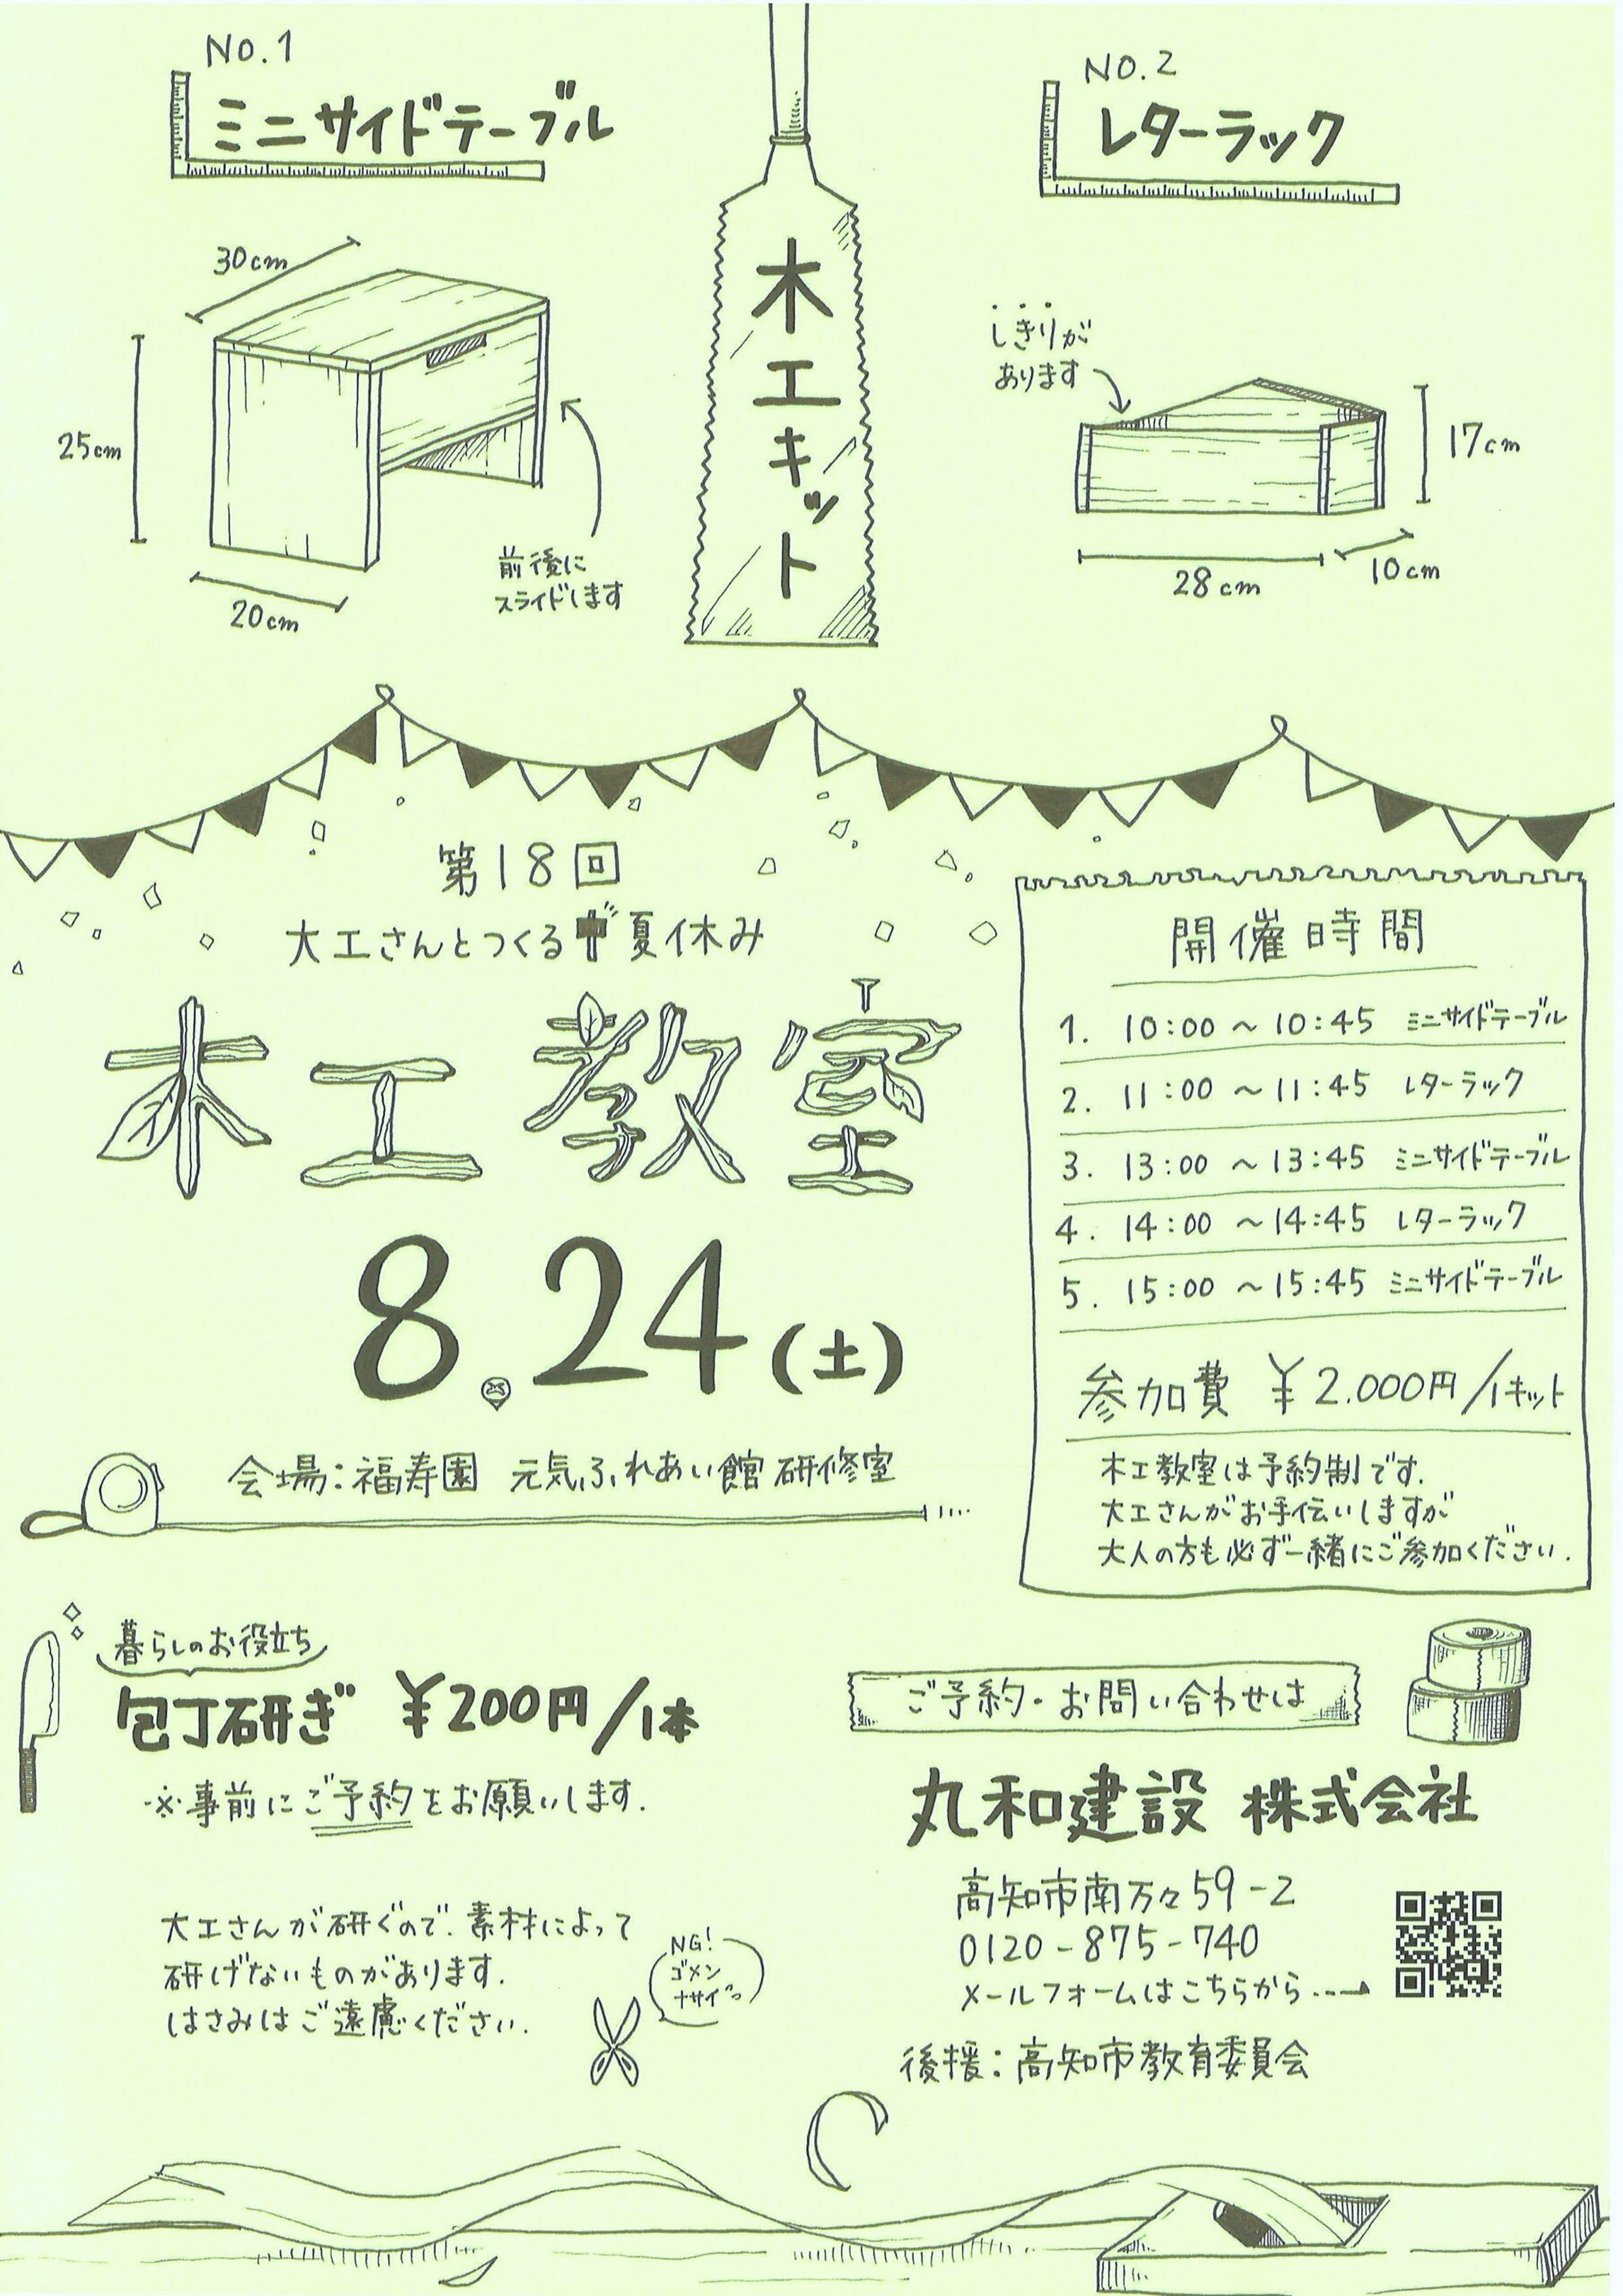 NO.1
ミニサイドテーブル
30cm
25cm
20cm
前後に
スライドします
木工キット
NO.2
レターラック
しきりが
あります
17cm
28cm
10cm
第18回
大工さんとつくる夏休み
木工教室
8.24(土)
会場:福寿園 元気ふれあい館 研修室
開催時間
1. 10:00 ~ 10:45 ミニサイドテーブル
2. 11:00 ~ 11:45 レターラック
3. 13:00 ~ 13:45 ミニサイドテーブル
4. 14:00 ~ 14:45 レターラック
5. 15:00 ~ 15:45 ミニサイドテーブル
参加費 ¥2.000円/1キット
木工教室は予約制です.
大工さんがお手伝いしますが
大人の方も必ず一緒にご参加ください.
暮らしのお役立ち
包丁研ぎ ¥200円/1本
※事前にご予約をお願いします.
大工さんが研ぐので、素材によって
研げないものがあります.
はさみはご遠慮ください.
NG!
ゴメン
ナサイっ
ご予約・お問い合わせは
丸和建設 株式会社
高知市南万々59-2
0120-875-740
メールフォームはこちらから
後援:高知市教育委員会